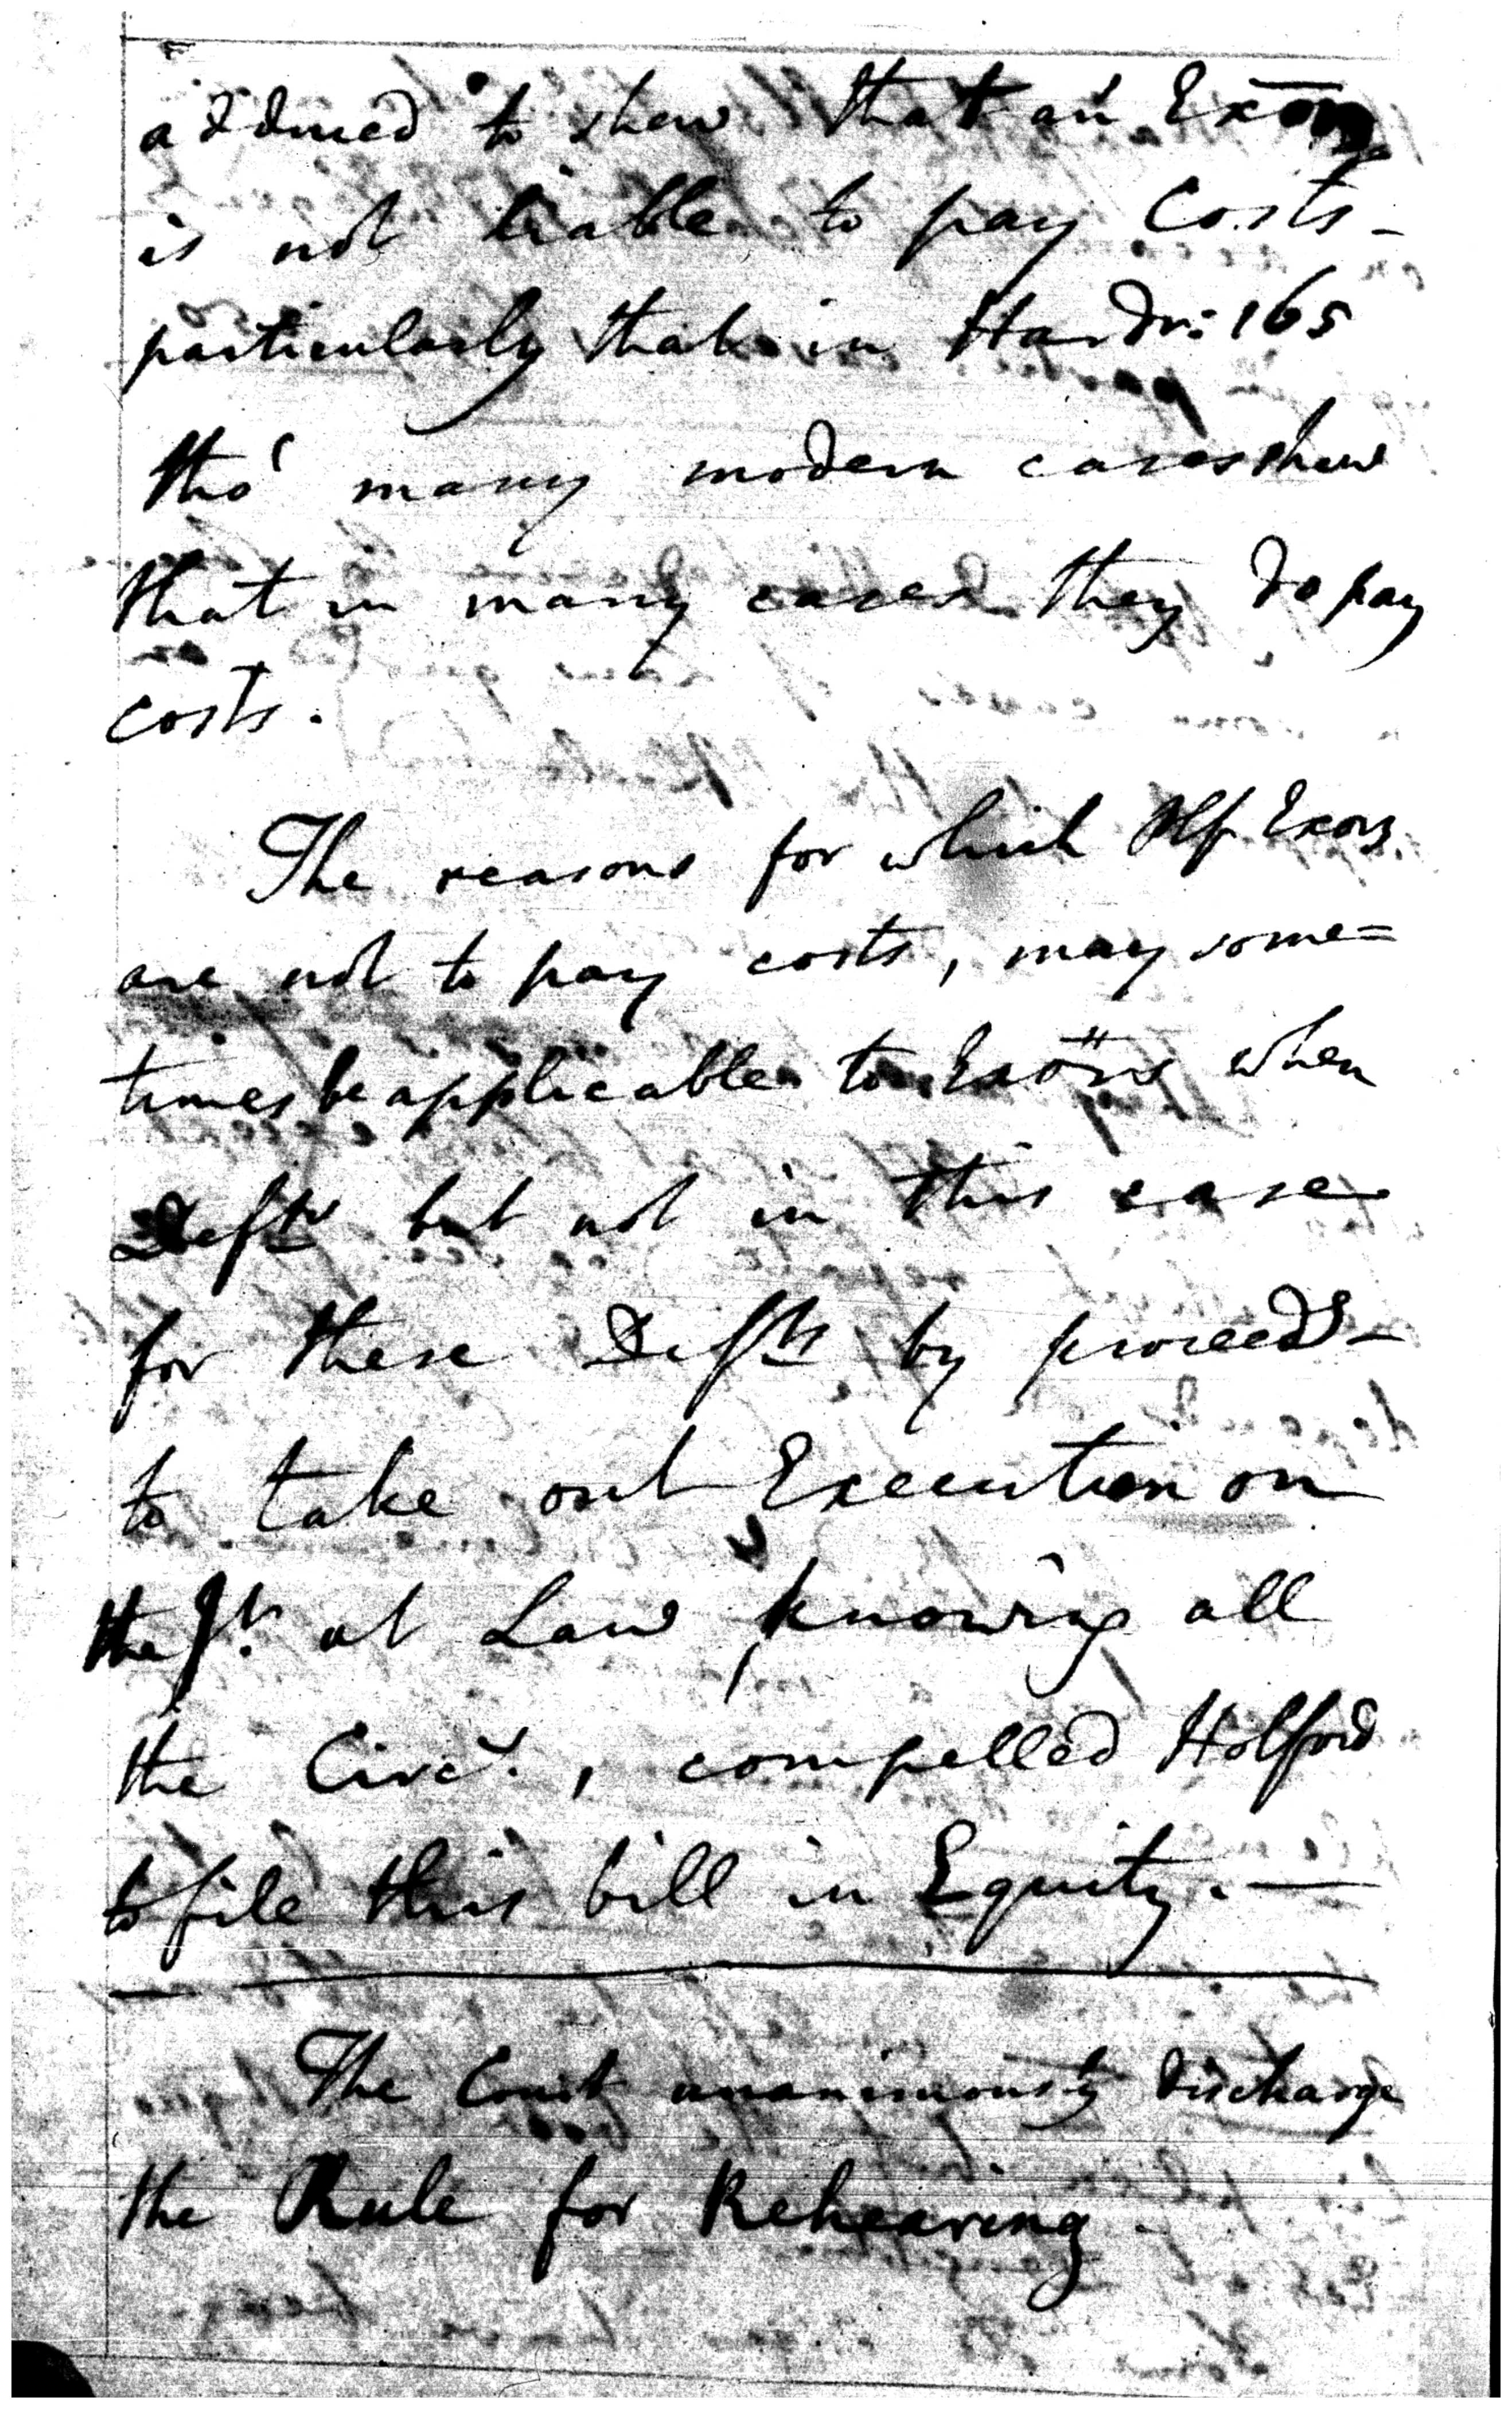 adduced to shew that an Exōr
is not liable to pay Costs -
particularly that in Hardr: 165
tho' many modern cases shew
that in many cases they do pay
costs.
The reasons for which Plf Exors
are not to pay costs, may some=
times be applicable to Exörs when
Defts but not in this case
for these Defts by proceedg -
to take out Execution on
the Jt. at Law, knowing all
the Circs., compelled Holford
to file this bill in Equity. —
The Court unanimously discharge
the Rule for Rehearing -